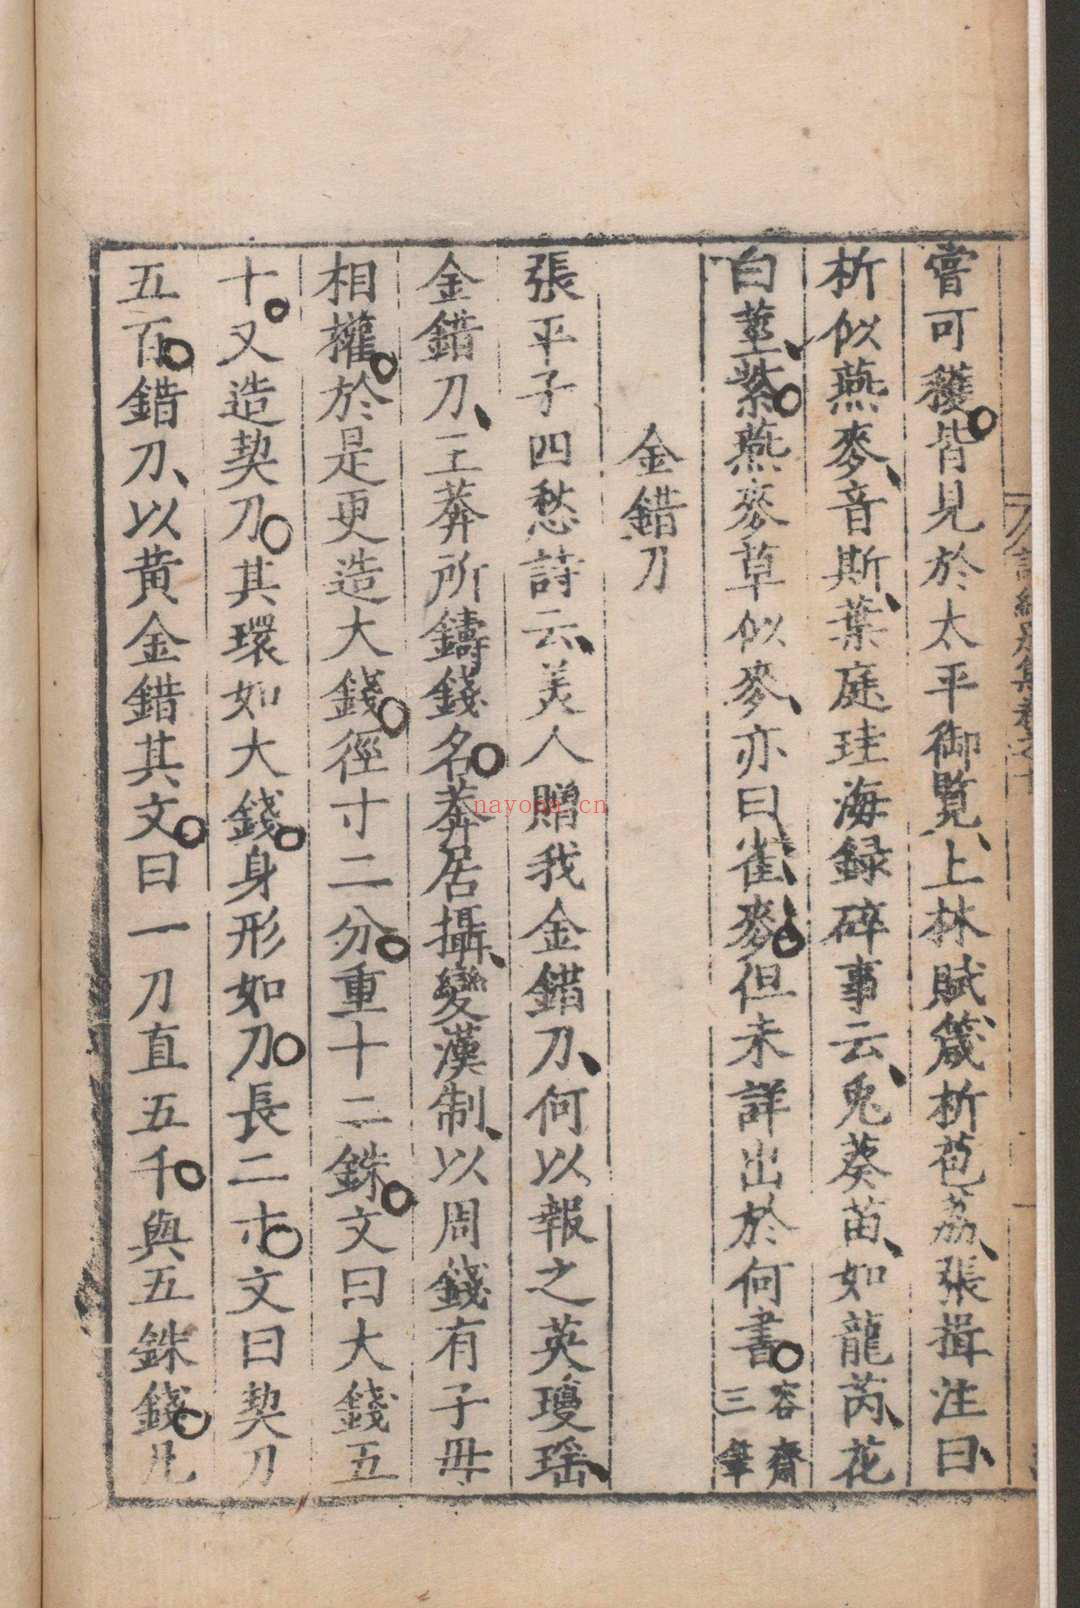 嘗可穫皆見於太平御覽上林賦葴析苞荔張揖注曰
析似燕麥音斯葉庭珪海録碎事云兎葵苗如龍芮花
白莖紫燕麥草似麥亦曰雀麥但未詳出於何書容齋三筆
金錯刀
張平子四愁詩云美人贈我金錯刀何以報之英瓊瑶
金錯刀王莽所鑄錢名莽居攝變漢制以周錢有子母
相權於是更造大錢徑寸二分重十二銖文曰大錢五
十又造契刀其環如大錢身形如刀長二寸文曰契刀
五百錯刀以黄金錯其文曰一刀直五千與五銖錢凡
nayona.cn